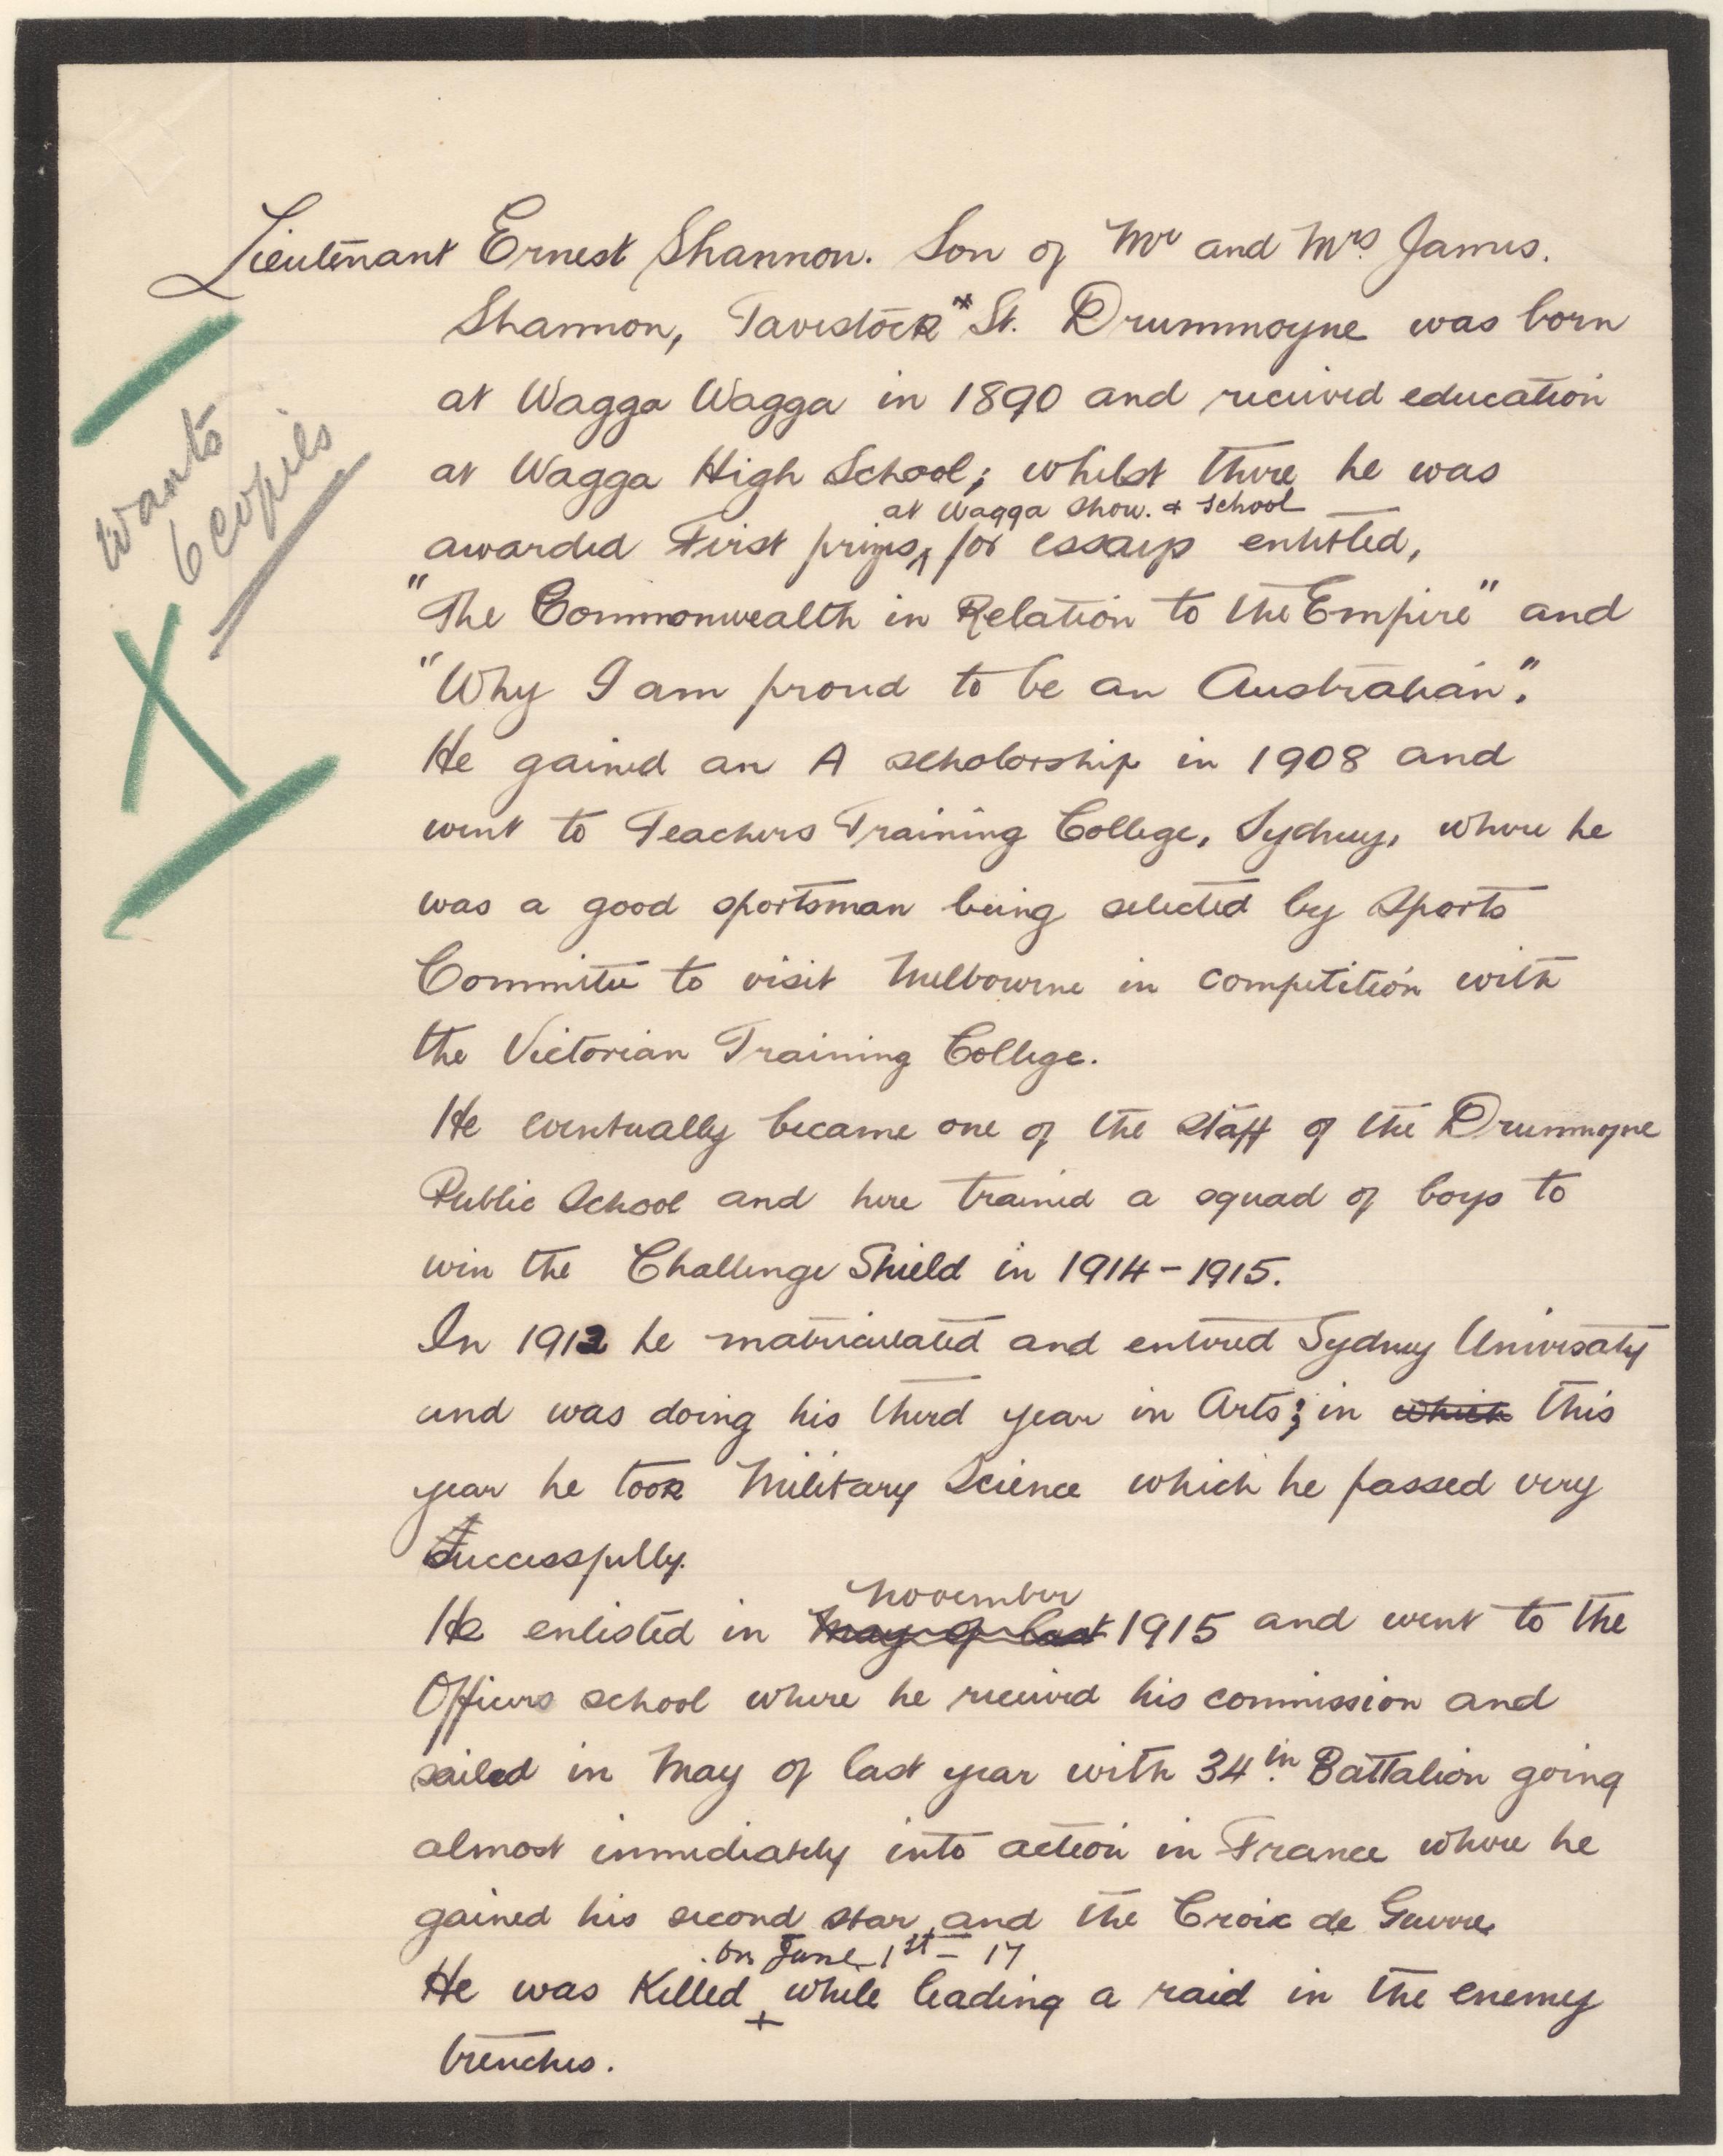 Lieutenant Ernest Shannon. Son of Mr and Mrs. James.
Shannon, Tavistock St. Drummoyne was born
at Wagga Wagga in 1890 and received education
at Wagga High School; whilst there he was
at Wagga Show. & School
awarded First prizes, for essays entitled,
"The Commonwealth in Relation to the Empire" and
"Why I am proud to be an Australian".
He gained an A scholarship in 1908 and
went to Teachers Training College, Sydney, where he
was a good sportsman being selected by Sports
Committee to visit Melbourne in competition with
the Victorian Training College.
He eventually became one of the staff of the Drummoyne
Public School and here trained a squad of boys to
win the Challenge Shield in 1914-1915.
In 1912 he matriculated and entered Sydney University
and was doing his third year in Arts; in which this
year he took Military Science which he passed very
Successfully.
November
He enlisted in May of last 1915 and went to the
Officers school where he received his commission and
sailed in May of last year with 34th Battalion going
almost immediately into action in France where he
gained his second star and the Croix de Guerre
on June 1st - 17
He was Killed + while leading a raid in the enemy
trenches.
wants
6 copies
X